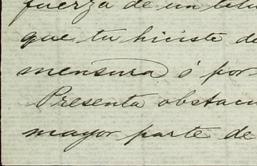 fuerza de un titu
que tu hiciste de
mensura ó por
Presenta obstacu
mayor parte de